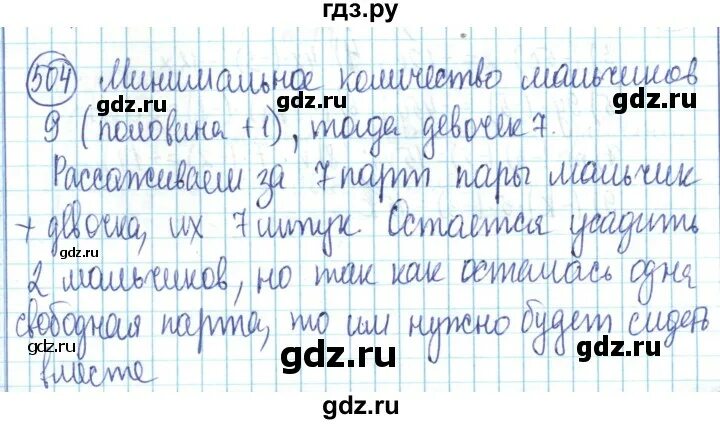 гдз.ру
504 Минимальное количество мальчиков
gdz.ru gdz.ru
9 (половина +1), тогда девочек 7.
Рассаживаем за 7 парт пары мальчик
gdz.ru gdz.ru
+ девочка, их 7 штук. Остается усадить
gdz.ru gdz.ru
2 мальчиков, но так как осталась одна
свободная парта, то им нужно будет сидеть
gdz.ru gdz.ru
вместе
gdz.ru